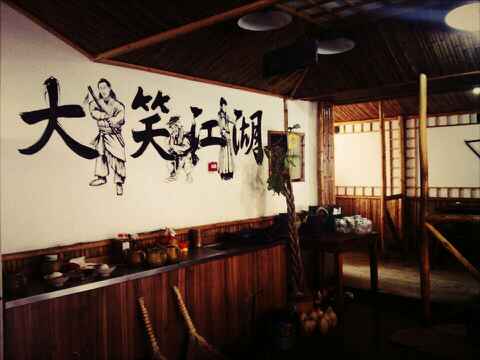 大笑江湖